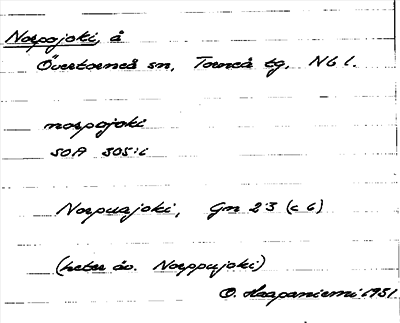 Norpojoki, å
Övertorneå sn, Torneå tg, Nb l.
norpojoki
SOA 305:i
Norpuajoki, Gn 23 (c 6)
(heter äv. Norppujoki)
O. Haapaniemi 1931